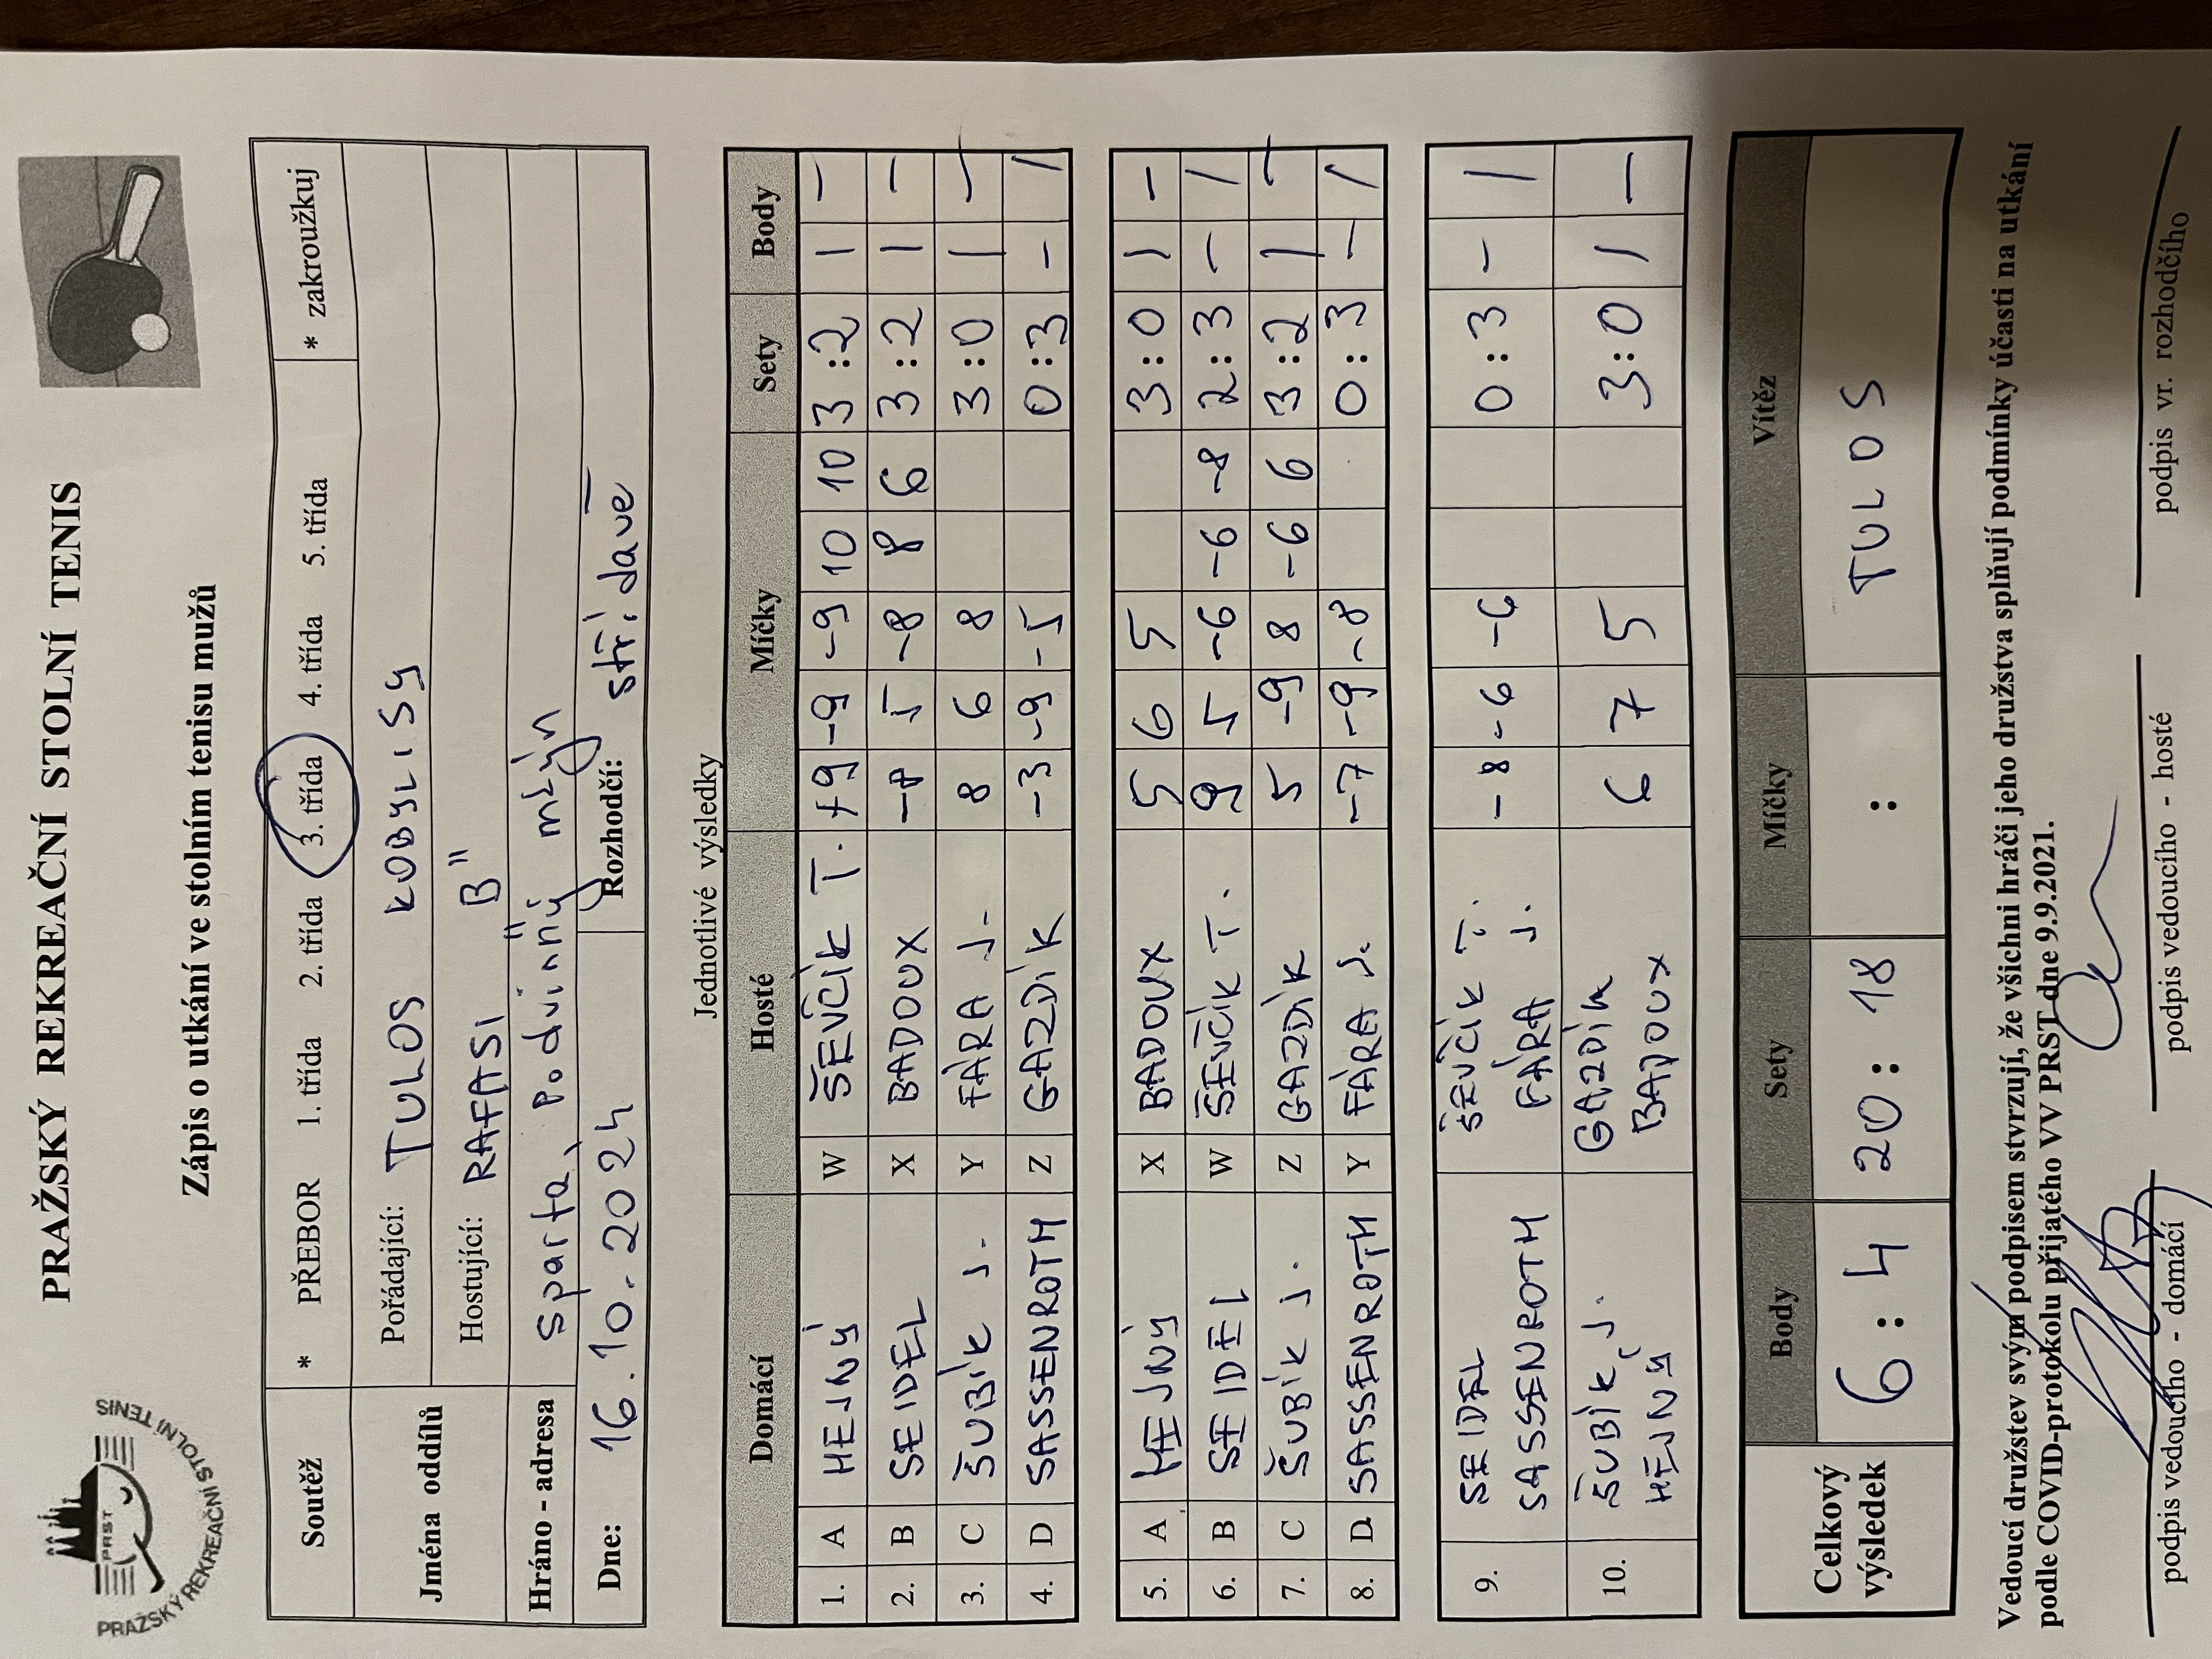 PRAŽSKÝ REKREAČNÍ STOLNÍ TENIS
PRST
PRAŽSKÝ REKREAČNÍ STOLNÍ TENIS
Zápis o utkání ve stolním tenisu mužů
Soutěž * PŘEBOR 1. třída 2. třída 3. třída 4. třída 5. třída * zakroužkuj
Jména oddílů Pořádající: TULOS KOBYLISY
Hostující: RAFASI "B"
Hráno - adresa Sparta, Podvinný mlýn
Dne: 16.10.2024 Rozhodčí: střídavě
Jednotlivé výsledky
Domácí Hosté Míčky Sety Body
1. A HEJNÝ W ŠEVČÍK T. +9 -9 -9 10 10 3:2 1 -
2. B SEIDEL X BADOUX -8 5 -8 8 6 3:2 1 -
3. C ŠUBÍK J. Y FÁRA J. 8 6 8 3:0 1 -
4. D SASSENROTH Z GAZDÍK -3 -9 -5 0:3 - 1
5. A HEJNÝ X BADOUX 5 6 5 3:0 1 -
6. B SEIDEL W ŠEVČÍK T. 9 5 -6 -6 -8 2:3 - 1
7. C ŠUBÍK J. Z GAZDÍK 5 -9 8 -6 6 3:2 1 -
8. D SASSENROTH Y FÁRA J. -7 -9 -8 0:3 - 1
9. SEIDEL ŠEVČÍK T. -8 -6 -6 0:3 - 1
SASSENROTH FÁRA J.
10. ŠUBÍK J. GAZDÍK 6 7 5 3:0 1 -
HEJNÝ BADOUX
Celkový výsledek Body Sety Míčky Vítěz
6:4 20:18 : TULOS
Vedoucí družstev svým podpisem stvrzují, že všichni hráči jeho družstva splňují podmínky účasti na utkání
podle COVID-protokolu přijatého VV PRST dne 9.9.2021.
podpis vedoucího - domácí podpis vedoucího - hosté podpis vr. rozhodčího